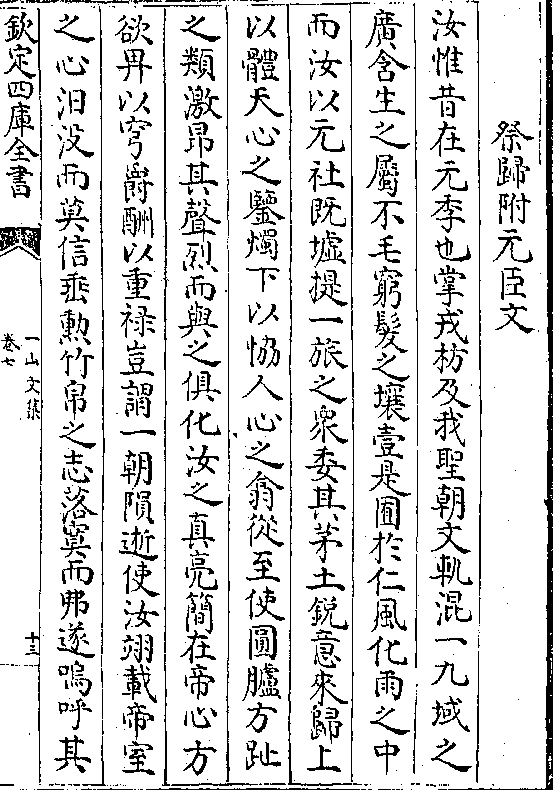 祭歸附元臣文
汝惟昔在元季也掌戎枋及我聖朝文軌混一九域之
廣含生之屬不毛窮髮之壤壹是囿於仁風化雨之中
而汝以元社既墟提一旅之衆委其茅土銳意來歸上
以體天心之鑒燭下以恊人心之翕從至使圓臚方趾
之類激昂其聲烈而與之俱化汝之真亮簡在帝心方
欲畀以穹爵酬以重禄豈謂一朝隕逝使汝翊載帝室
之心汨没而莫信垂勲竹帛之志落寞而弗遂嗚呼其
欽定四庫全書
一山文集
卷七
十三